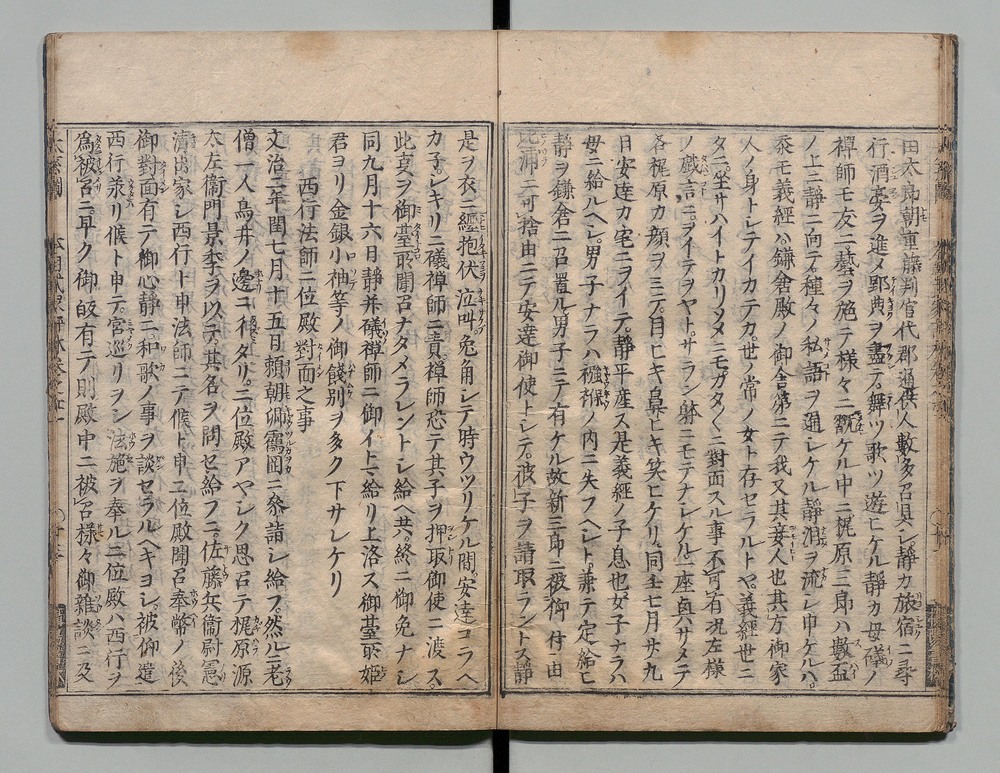 田太郎朝重藤判官代邦通供人數多召具シ静カ旅宿ニ尋
行酒宴ヲ進メ郢曲ヲ盡テ舞ツ歌ツ遊ヒケル静カ母礒ノ
禪師モ友ニ藝ヲ施テ様々ニ翫ケル中ニ梶原三郎ハ數盃
ノ上ニ静ニ向テ種々ノ私語ヲ通シケル静泪ヲ流シ申ケルハ
忝モ義經ハ鎌倉殿ノ御舎弟ニテ我又其妾人也其方御家
人ノ身トシテイカテカ世ノ常ノ女ト存セラルトヤ義經世ニ
タニ坐サハイトカリソメニモカタ〱ニ對面スル事不可有况左様
ノ戯言ニヲイテヲヤトサラン躰ニモテナシケル一座興サメテ
各梶原カ顔ヲミテ目ヒキ鼻ヒキ笑ヒケリ同七月廿九
日安達カ宅ニヲイテ静平産ス是義經ノ子息也女子ナラハ
母ニ給ルヘシ男子ナラハ襁褓ノ内ニ失フヘシト兼テ定給ヒ
静ヲ鎌倉ニ召置ル男子ニテ有ケル故新三郎ニ被仰付由
比浦ニ可捨由ニテ安達御使トシテ彼子ヲ請取ラントス静
是ヲ衣ニ纒抱伏泣叫兎角シテ時ウツリケル間安達コラヘ
カ子シキリニ礒禪師ニ責禪師恐テ其子ヲ押取御使ニ渡ス
此夏ヲ御臺所聞召ナタメラレントシ給ヘ共終ニ御免ナシ
同九月十六日静并礒禪師ニ御イトマ給リ上洛ス御臺所姫
君ヨリ金銀小袖等ノ御餞別ヲ多ク下サレケリ
西行法師二位殿對面之事
文治二年閏七月十五日頼朝卿靏岡ニ參詣シ給フ然ルニ老
僧一人鳥井ノ邊ニ徘徊タリ二位殿アヤシク思召テ梶原源
太左衞門景季ヲ以テ其名ヲ問セ給フニ佐藤兵衞尉憲
清出家シ西行ト申法師ニテ候ト申二位殿聞召奉幣ノ後
御對面有テ御心静ニ和歌ノ事ヲ談セラルヘキヨシ被仰遣
西行承リ候ト申テ宮巡リヲシ法施ヲ奉ル二位殿ハ西行ヲ
爲被召ニ早ク御皈有テ則殿中ニ被召様々御雜談ニ及